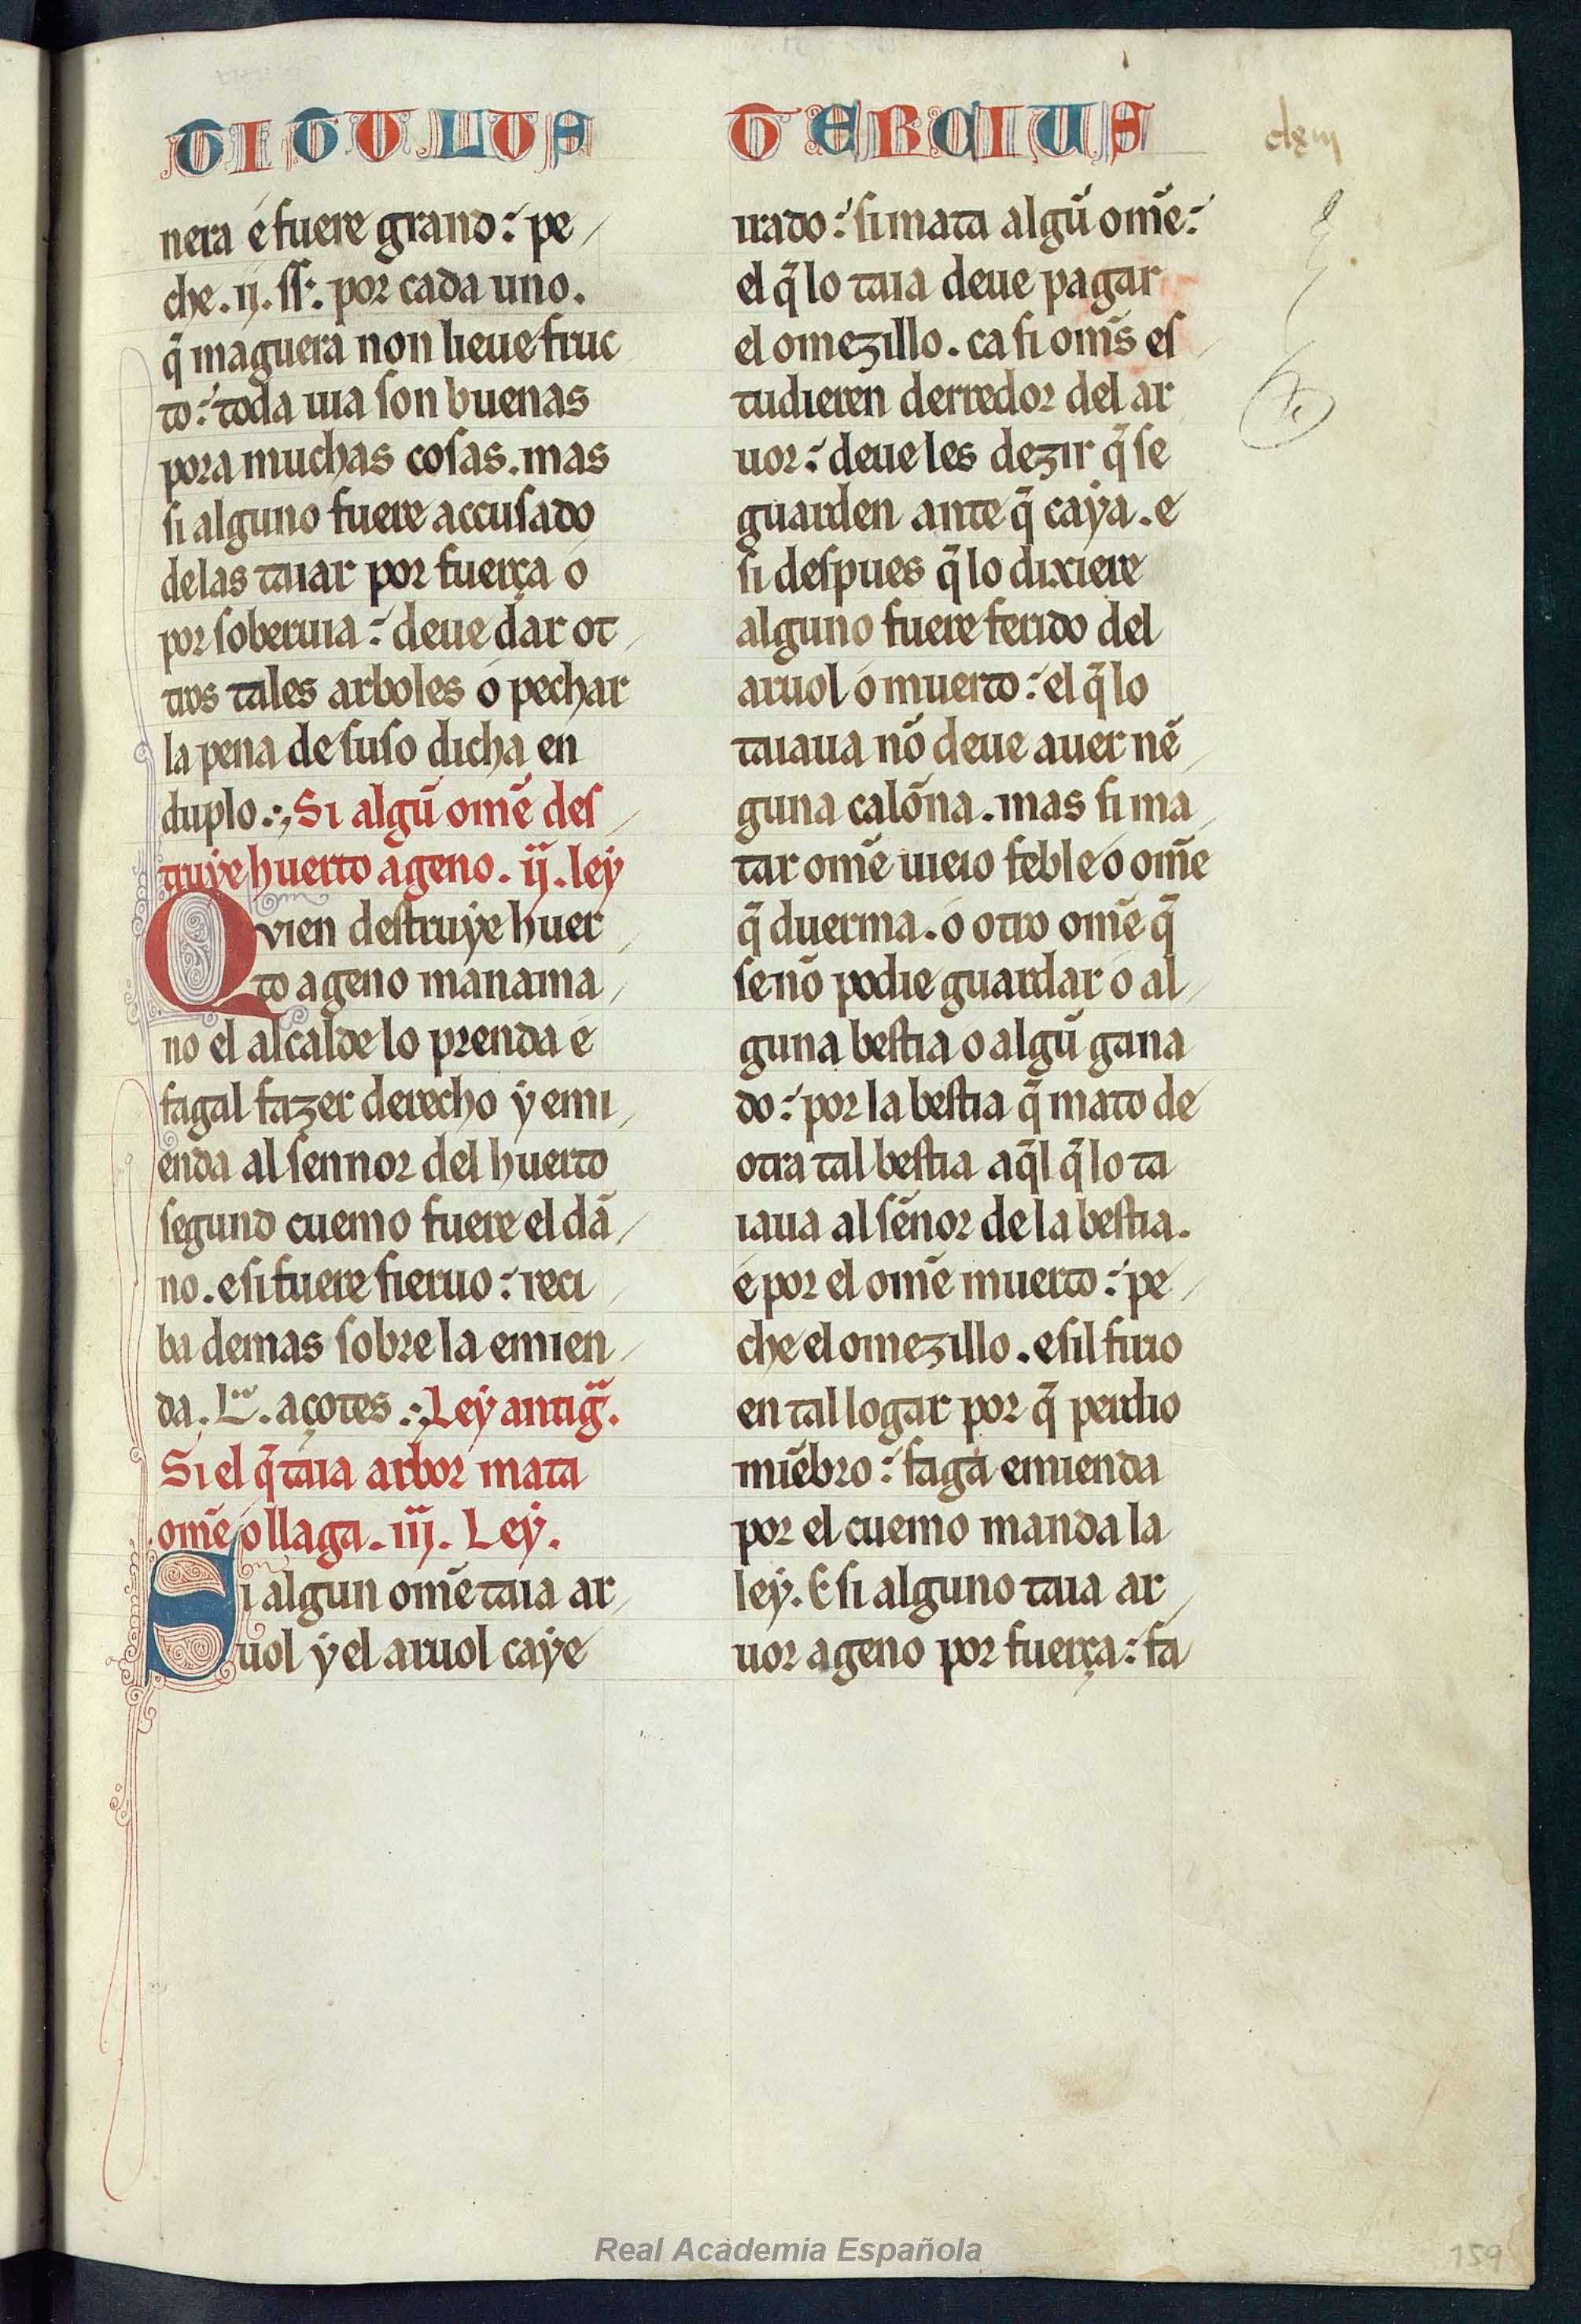 TITULUS TERCIUS
nera é fuere grand: pe
che. ij. ſſ. por cada uno.
q̃ maguera non lieue fruc
to: toda uia ſon buenas
pora muchas coſas. mas
ſi alguno fuere accuſado
delas taiar por fuerça ó
por ſoberuia: deue dar ot
tros tales arboles ó pechar
la pena de ſuſo dicha en
duplo. Si algũ omẽ deſ
truẏe huerto ageno. ij. leẏ
Quien deſtruẏe huer
to ageno manama
no el alcalde lo prenda é
fagal fazer derecho ẏ emi
enda al ſennor del huerto
ſegund cuemo fuere el dã
no. e ſi fuere ſieruo: reci
ba demas ſobre la emien
da. L. açotes. Leẏ antig̃.
Si el q̃ taia arbor mata
omẽ ó llaga. iij. Leẏ.
Si algun omẽ taia ar
uol ẏ el aruol caẏe
urado: ſi mata algũ omẽ:
el q̃ lo taia deue pagar
el omezillo. ca ſi om̃s eſ
tudieren derredor del ar
uor: deue les dezir q̃ ſe
guarden ante q̃ caẏa. e
ſi deſpues q̃ lo dixiere
alguno fuere ferido del
aruol ó muerto: el q̃ lo
taiaua nõ deue auer nẽ
guna calõna. mas ſi ma
tar omẽ uieio feble o omẽ
q̃ duerma. ó otro omẽ q̃
ſe nõ podie guardar ó al
guna beſtia o algũ gana
do: por la beſtia q̃ mato de
otra tal beſtia aq̃l q̃ lo ta
iaua al ſẽnor de la beſtia.
é por el omẽ muerto: pe
che el omezillo. e ſil firio
en tal logar por q̃ perdio
miẽbro: faga emienda
por el cuemo manda la
leẏ. E ſi alguno taia ar
uor ageno por fuerça: fa
Real Academia Española
159